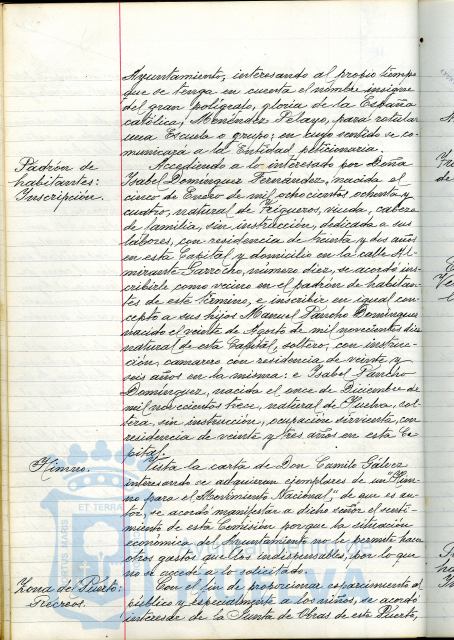 Ayuntamiento, interesando al propio tiempo
que se tenga en cuenta el nombre insigne
del gran polígrafo, gloria de la España
católica, Menéndez Pelayo, para rotular
una Escuela o grupo; en cuyo sentido se co-
municará a la Entidad peticionaria.
Padrón de
habitantes:
Inscripción.
Accediendo a lo interesado por Doña
Isabel Domínguez Fernández, nacida el
cinco de Enero de mil ochocientos ochenta y
cuatro, natural de Trigueros, viuda, cabeza
de familia, sin instrucción, dedicada a sus
labores, con residencia de treinta y dos años
en esta Capital y domicilio en la calle Al-
mirante Garrocho, número diez, se acordó ins-
cribirle como vecino en el padrón de habitan-
tes de este término, e inscribir en igual con-
cepto a sus hijos Manuel Pancho Domínguez
nacido el veinte de Agosto de mil novecientos diez
natural de esta Capital, soltero, con instruc-
ción, camarero con residencia de veinte y
seis años en la misma: e Isabel Pancho
Domínguez, nacida el once de Diciembre de
mil novecientos trece, natural de Huelva, sol-
tera, sin instrucción, ocupación sirvienta, con
residencia de veinte y tres años en esta Ca-
pital.
Himno.
Vista la carta de Don Camilo Gálvez
interesando se adquieran ejemplares de un "Him-
no para el Movimiento Nacional" de que es au-
tor, se acordó manifestar a dicho señor el senti-
miento de esta Comisión porque la situación
económica del Ayuntamiento no le permite hacer
otros gastos que los indispensables, por lo que
no se accede a lo solicitado.
Zona del Puerto:
Recreos.
Con el fin de proporcionar esparcimiento al
público y especialmente a los niños, se acordó
interesar de la Junta de Obras de este Puerto,